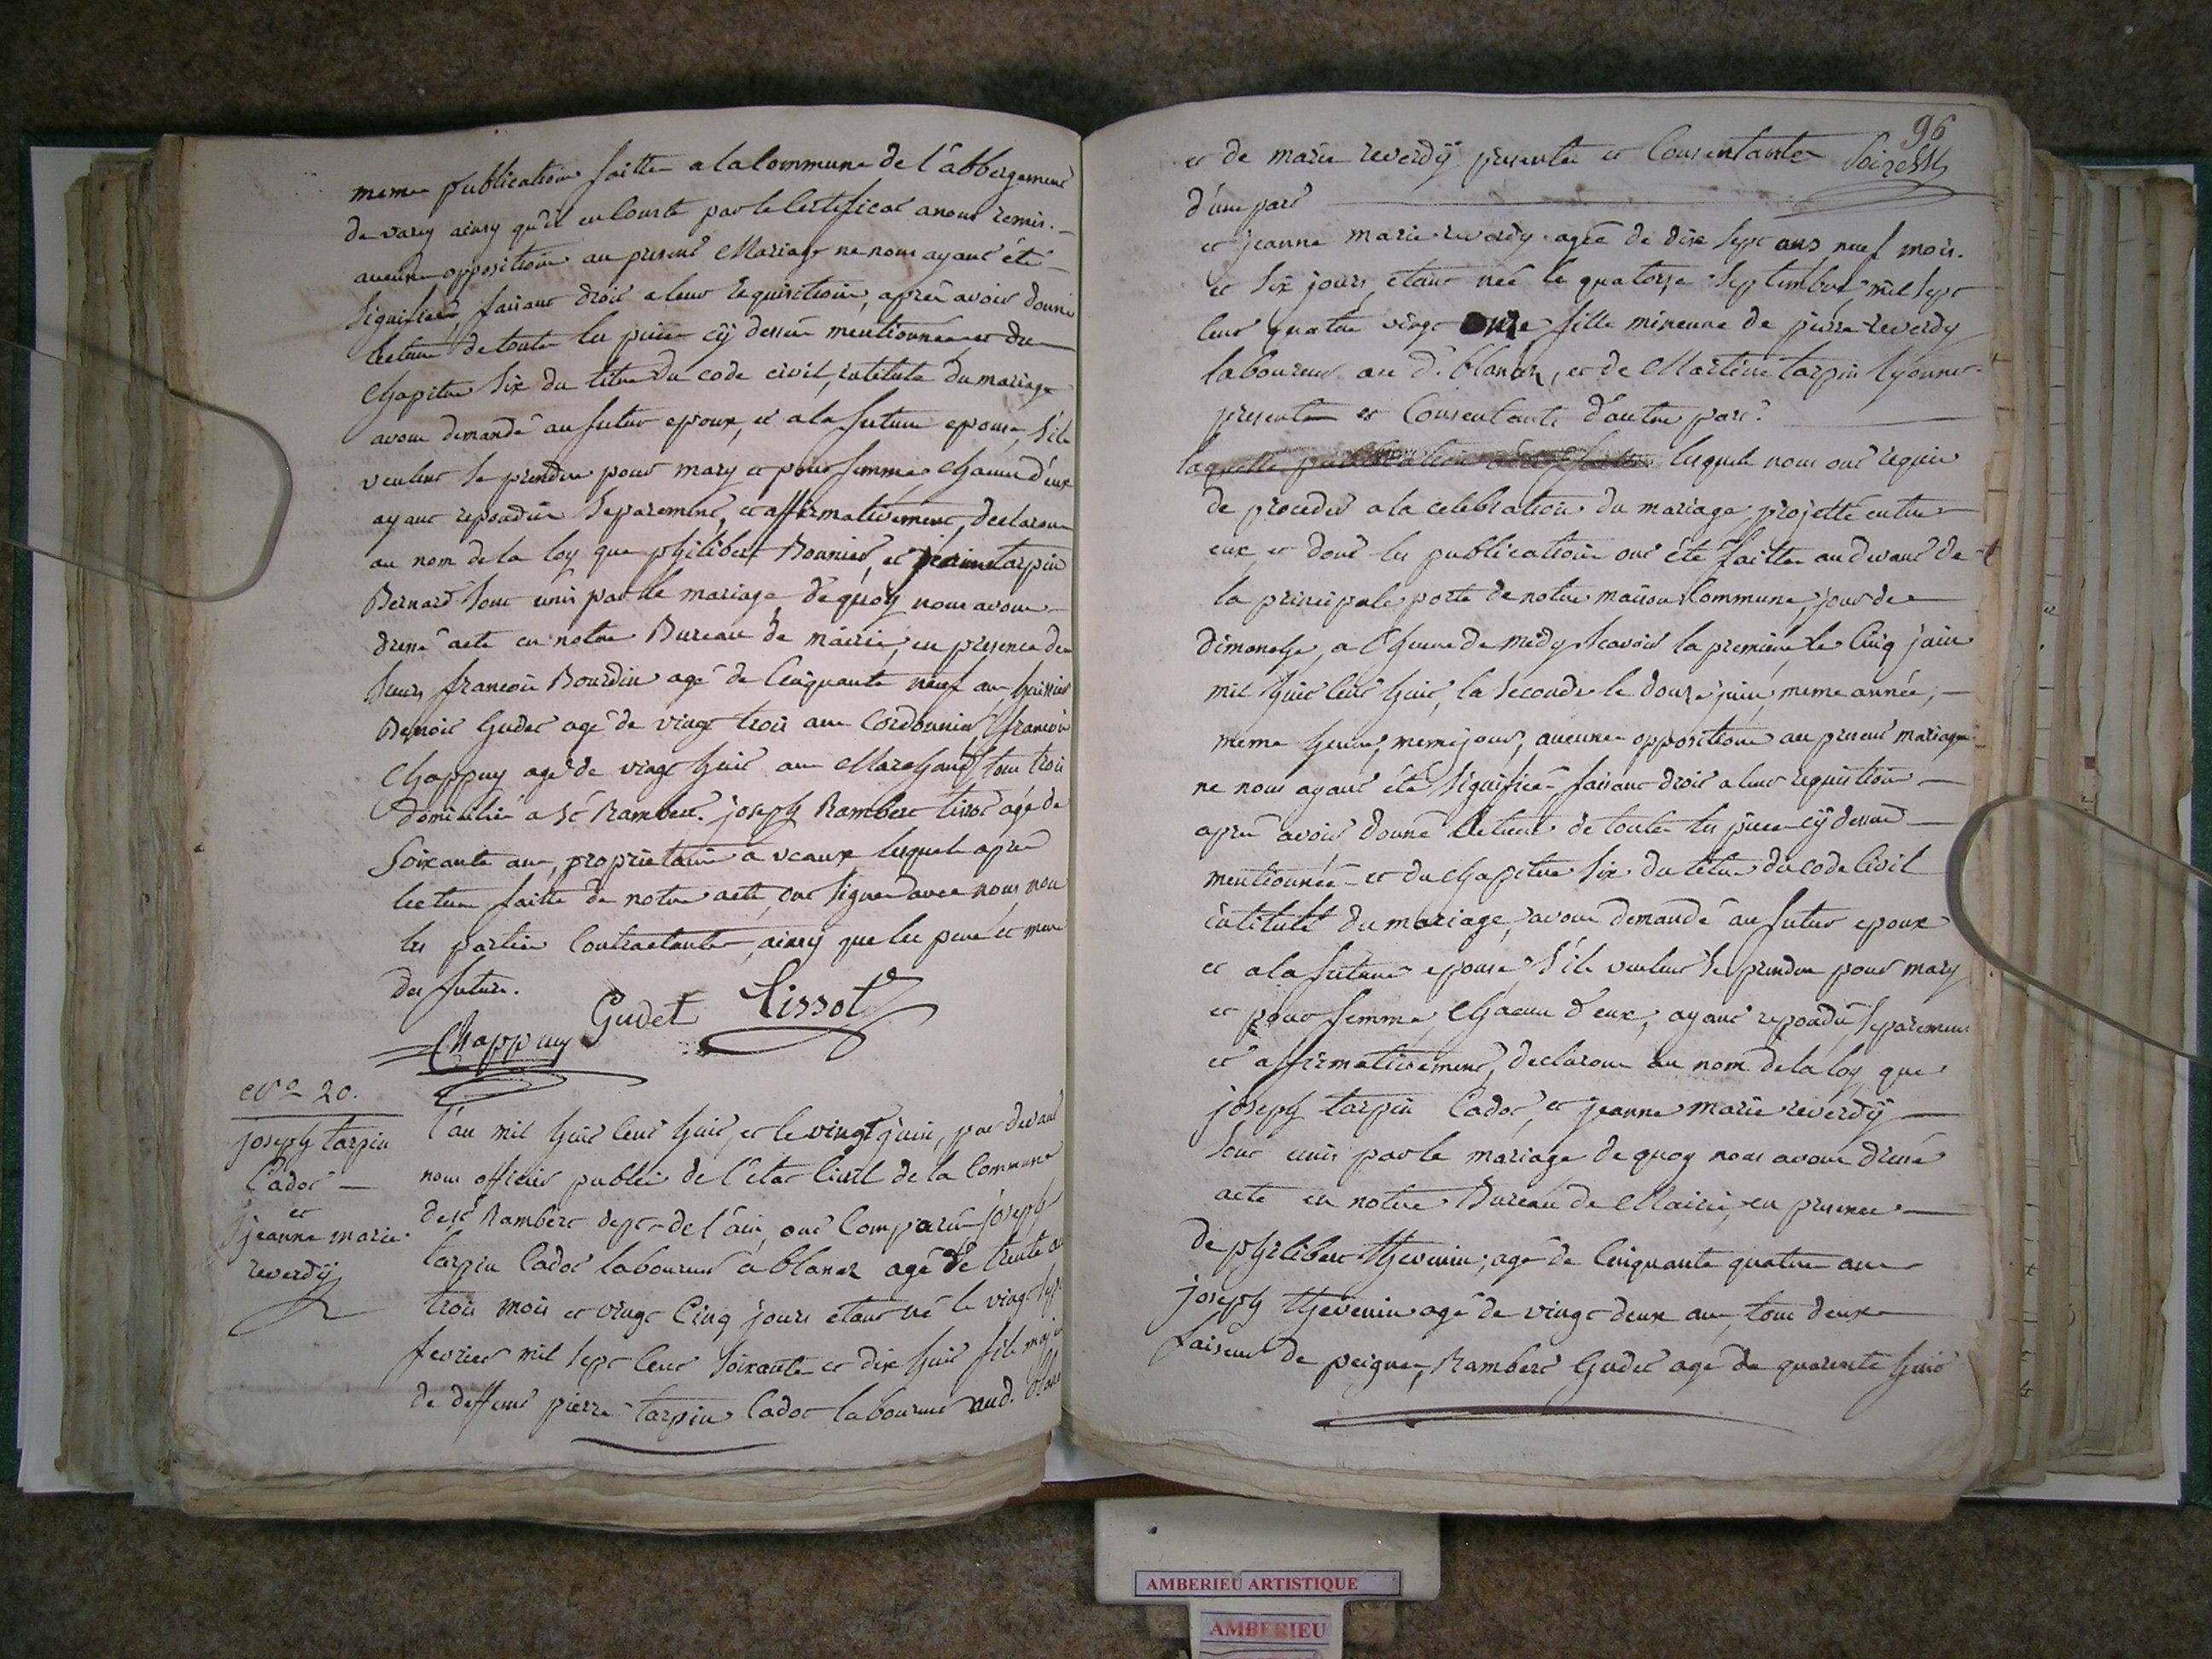 meme publication faitte a la Commune de l'abbergement
de varey ainsy qu'il en Conste par le Certificat a nous remis.
aucune opposition au present Mariage ne nous ayant été
signifiée, faisant droit a leur requisition, après avoir donné
lecture de toutes les pieces cÿ dessus mentionnées et du
Chapitre Six du titre du code civil, intitulé du mariage
avons demandé au futur epoux, et a la future epouse, s'ils
veulent se prendre pour mary et pour femme, chacun d'eux
ayant repondu separement, et affirmativement, declarons
au nom de la loy que philibert Bonnier, et tarpin
Bernard sont unis par le mariage, de quoy nous avons
dressé acte en notre Bureau de mairie, en presence de
sieurs françois Bourdin agé de Cinquante neuf ans huissier
Benoit Gudet agé de vingt trois ans Cordonnier, françois
Chappuy agé de vingt huit ans Marchand tous trois
domiciliés a St Rambert. joseph Rambert tissot agé de
Soixante ans, proprietaire a veaux lesquels après
lecture faitte de notre acte, ont signé avec nous, non
les parties Contractantes, ainsy que les pere et mere
des futurs.
Chappuy Gudet Tissot
N° 20.
joseph tarpin
Cadot
et
jeanne marie
reverdÿ
L'an mil huit Cent huit, et le vingt juin, par devant
nous officier public de l'état Civil de la Commune
de St Rambert dept de l'ain, ont Comparu joseph
tarpin Cadot laboureur a blanaz agé de trente ans
trois mois et vingt Cinq jours etant né le vingt sept
fevrier mil sept Cent soixante et dix huit fils majeur
de deffunt pierre tarpin Cadot laboureur aud. blanaz
96
et de marie reverdÿ presente et Consentante
d'une part
et jeanne marie reverdy agée de dix sept ans neuf mois
et six jours, etant née le quatorze Septembre mil sept
Cent quatre vingt fille mineure de pierre reverdy
laboureur au d. blanaz, et de Martine tarpin lyonnet
presents et Consentants d'autre part.
laquelle publication lesquels nous ont requis
de proceder a la celebration du mariage projetté entre
eux, et dont les publications ont été faittes au devant de
la principale porte de notre maison Commune, jour de
dimanche, a l'heure de midy, scavoir la premiere le Cinq juin
mil huit Cent huit, la seconde le douze juin, meme année,
meme heure, meme jour, aucune opposition au present mariage
ne nous ayant été signifiée, faisant droit a leur requisition
après avoir donné lecture de toutes les pieces cÿ dessus
mentionnées et du Chapitre Six du titre du code Civil
intitulé du mariage, avons demandé au futur epoux
et a la future epouse, s'ils veulent se prendre pour mary
et pour femme, chacun d'eux, ayant repondu separement
et affirmativement, declarons au nom de la loy que
joseph tarpin Cadot, et jeanne marie reverdÿ
sont unis par le mariage de quoy nous avons dressé
acte en notre Bureau de Mairie, en presence
de philibert thevenin, agé de Cinquante quatre ans
joseph thevenin agé de vingt deux ans, tous deux
faiseurs de peignes, Rambert Gudet agé de quarante huit
AMBERIEU ARTISTIQUE
AMBERIEU